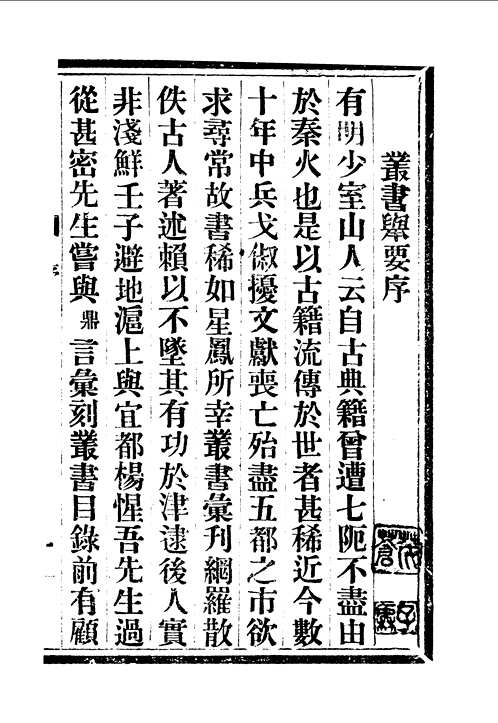 叢書舉要序
有明少室山人云自古典籍曾遭七阨不盡由
於秦火也是以古籍流傳於世者甚稀近今數
十年中兵戈俶擾文獻喪亡殆盡五都之市欲
求尋常故書稀如星鳳所幸叢書彙刊綱羅散
佚古人著述賴以不墜其有功於津逮後人實
非淺鮮壬子避地滬上與宜都楊惺吾先生過
從甚密先生嘗與鼎言彙刻叢書目錄前有顧